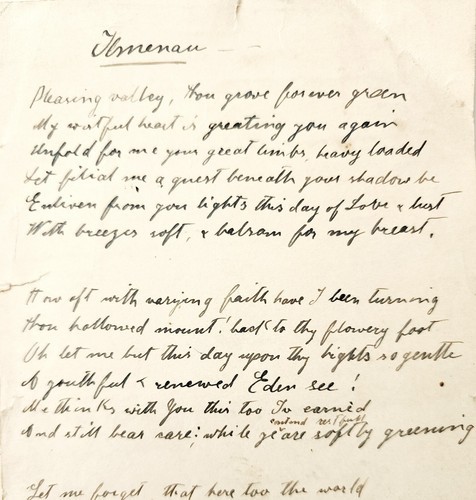 Ilmenau
Pleasing valley, thou grove forever green
My wistful heart is greeting you again
Unfold for me your great limbs, heavy loaded
Let filial me a guest beneath your shadow be
Enliven from your hights this day of Love &
With breezes soft, & balsam for my breast.
How oft with varying faith have I been turning
thou hallowed mount! back to thy flowery foot
Oh let me but this day upon thy hights so gentle
A youthful & renewed Eden see!
Me thinks with You this too I've earned
and restful
And still bear care: while ye are softly greening
Let me forget that here too the world